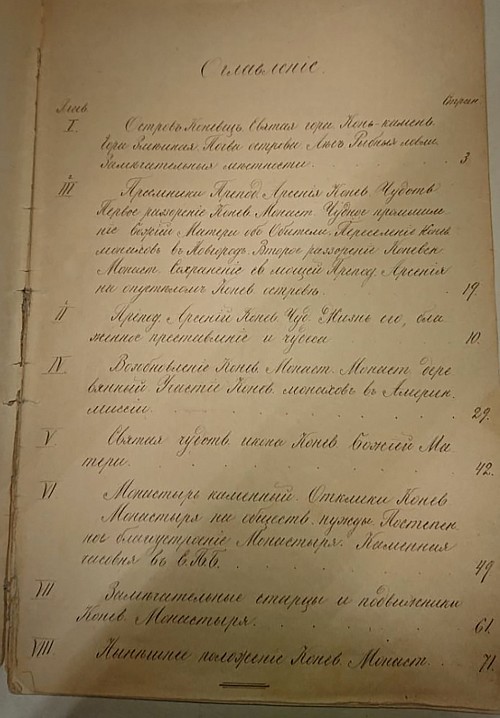 Оглавленіе.
Глав. Стран.
I. Островъ Коневецъ. Святая гора. Конь-камень.
Гора Змѣиная. Почва острова. Лѣсъ. Рыбныя ловли.
Замѣчательныя мѣстности. 3.
III Преемники Препод. Арсенія Конев. Чудотв.
Первое раззореніе Конев. Монаст. Чудное промышле-
ніе Божіей Матери объ Обители. Переселеніе Конев.
монаховъ въ Новгородъ. Второе раззореніе Коневск.
Монаст. Сохраненіе св. мощей Препод. Арсенія
на опустѣломъ Конев. островѣ. 19.
II Препод. Арсеній Конев. Чуд. Жизнь его, бла-
женное преставленіе и чудеса 10.
IV Возобновленіе Конев. Монаст. Монаст. дере-
вянный. Участіе Конев. монаховъ въ Америк.
миссіи. 29.
V Святая чудотв. икона Конев. Божіей Ма-
тери. 42.
VI Монастырь каменный. Отклики Конев.
Монастыря на обществ. нужды. Постепен-
ное благоустроеніе Монастыря. Каменная
часовня въ С.П.Б. 49
VII Замѣчательные старцы и подвижники
Конев. Монастыря. 61.
VIII Нынѣшнее положеніе Конев. Монаст. 71.